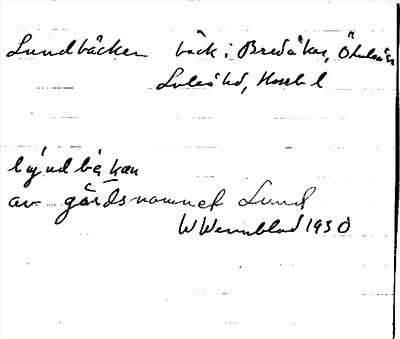 Lundbäcken bäck i Bredåker, Ö
Luleå ld, Norrb l
av gårdsnamnet Lund
W Wennblad 1930